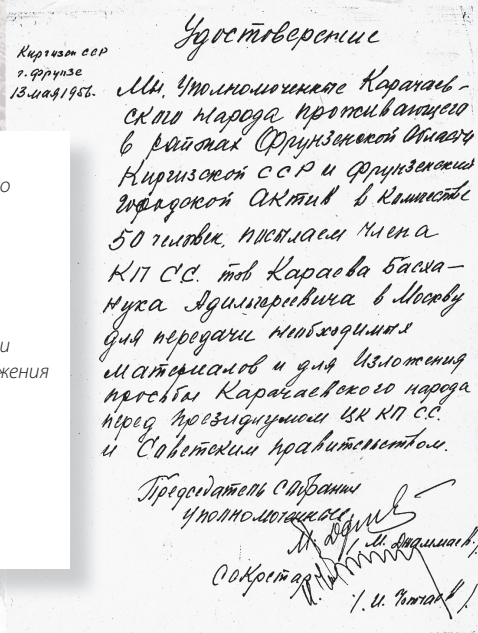 Удостоверение
Киргизск ССР
г. Фрунзе
13 мая 1956.
Мы, Уполномоченные Карачаев-
ского народа проживающего
в районах Фрунзенской Области
Киргизской ССР и Фрунзенский
городской Актив в Количестве
50 человек, посылаем члена
КП СС. тов Караева Басха-
нука Адильгереевича в Москву
для передачи необходимых
материалов и для Изложения
просьбы Карачаевского народа
перед Президиумом ЦК КП СС.
и Советским правительством.
Председатель Собрания
уполномоченные,
/ М. /
Секретарь
/ И. /
о
и
жения